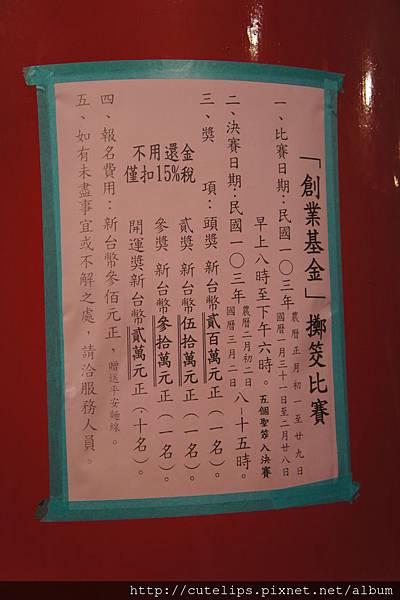 「創業基金」擲筊比賽
一、比賽日期：民國一〇三年 農曆正月初一至廿九日
國曆一月三十一日至二月廿八日
早上八時至下午六時。五個聖筊入決賽
二、決賽日期：民國一〇三年 農曆二月初二日
國曆三月二日 八–十五時。
三、獎　項：頭獎 新台幣貳百萬元正（一名）。
貳獎 新台幣伍十萬元正（一名）。
參獎 新台幣參十萬元正（一名）。
開運獎新台幣貳萬元正（十名）。
不用還金
僅扣15%稅
四、報名費用：新台幣參佰元正，贈送平安麵線。
五、如有未盡事宜或不解之處，請洽服務人員。
http://cutelips.pixnet.net/album